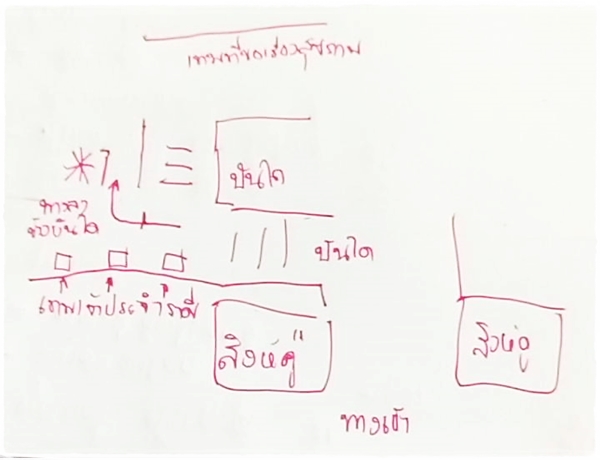 เทพที่ขอเรื่องสุขภาพ
บันได
ทางลา
ข้างบันได
บันได
เทพเจ้าประจำราศี
สิงห์คู่
สิงห์คู่
ทางเข้า